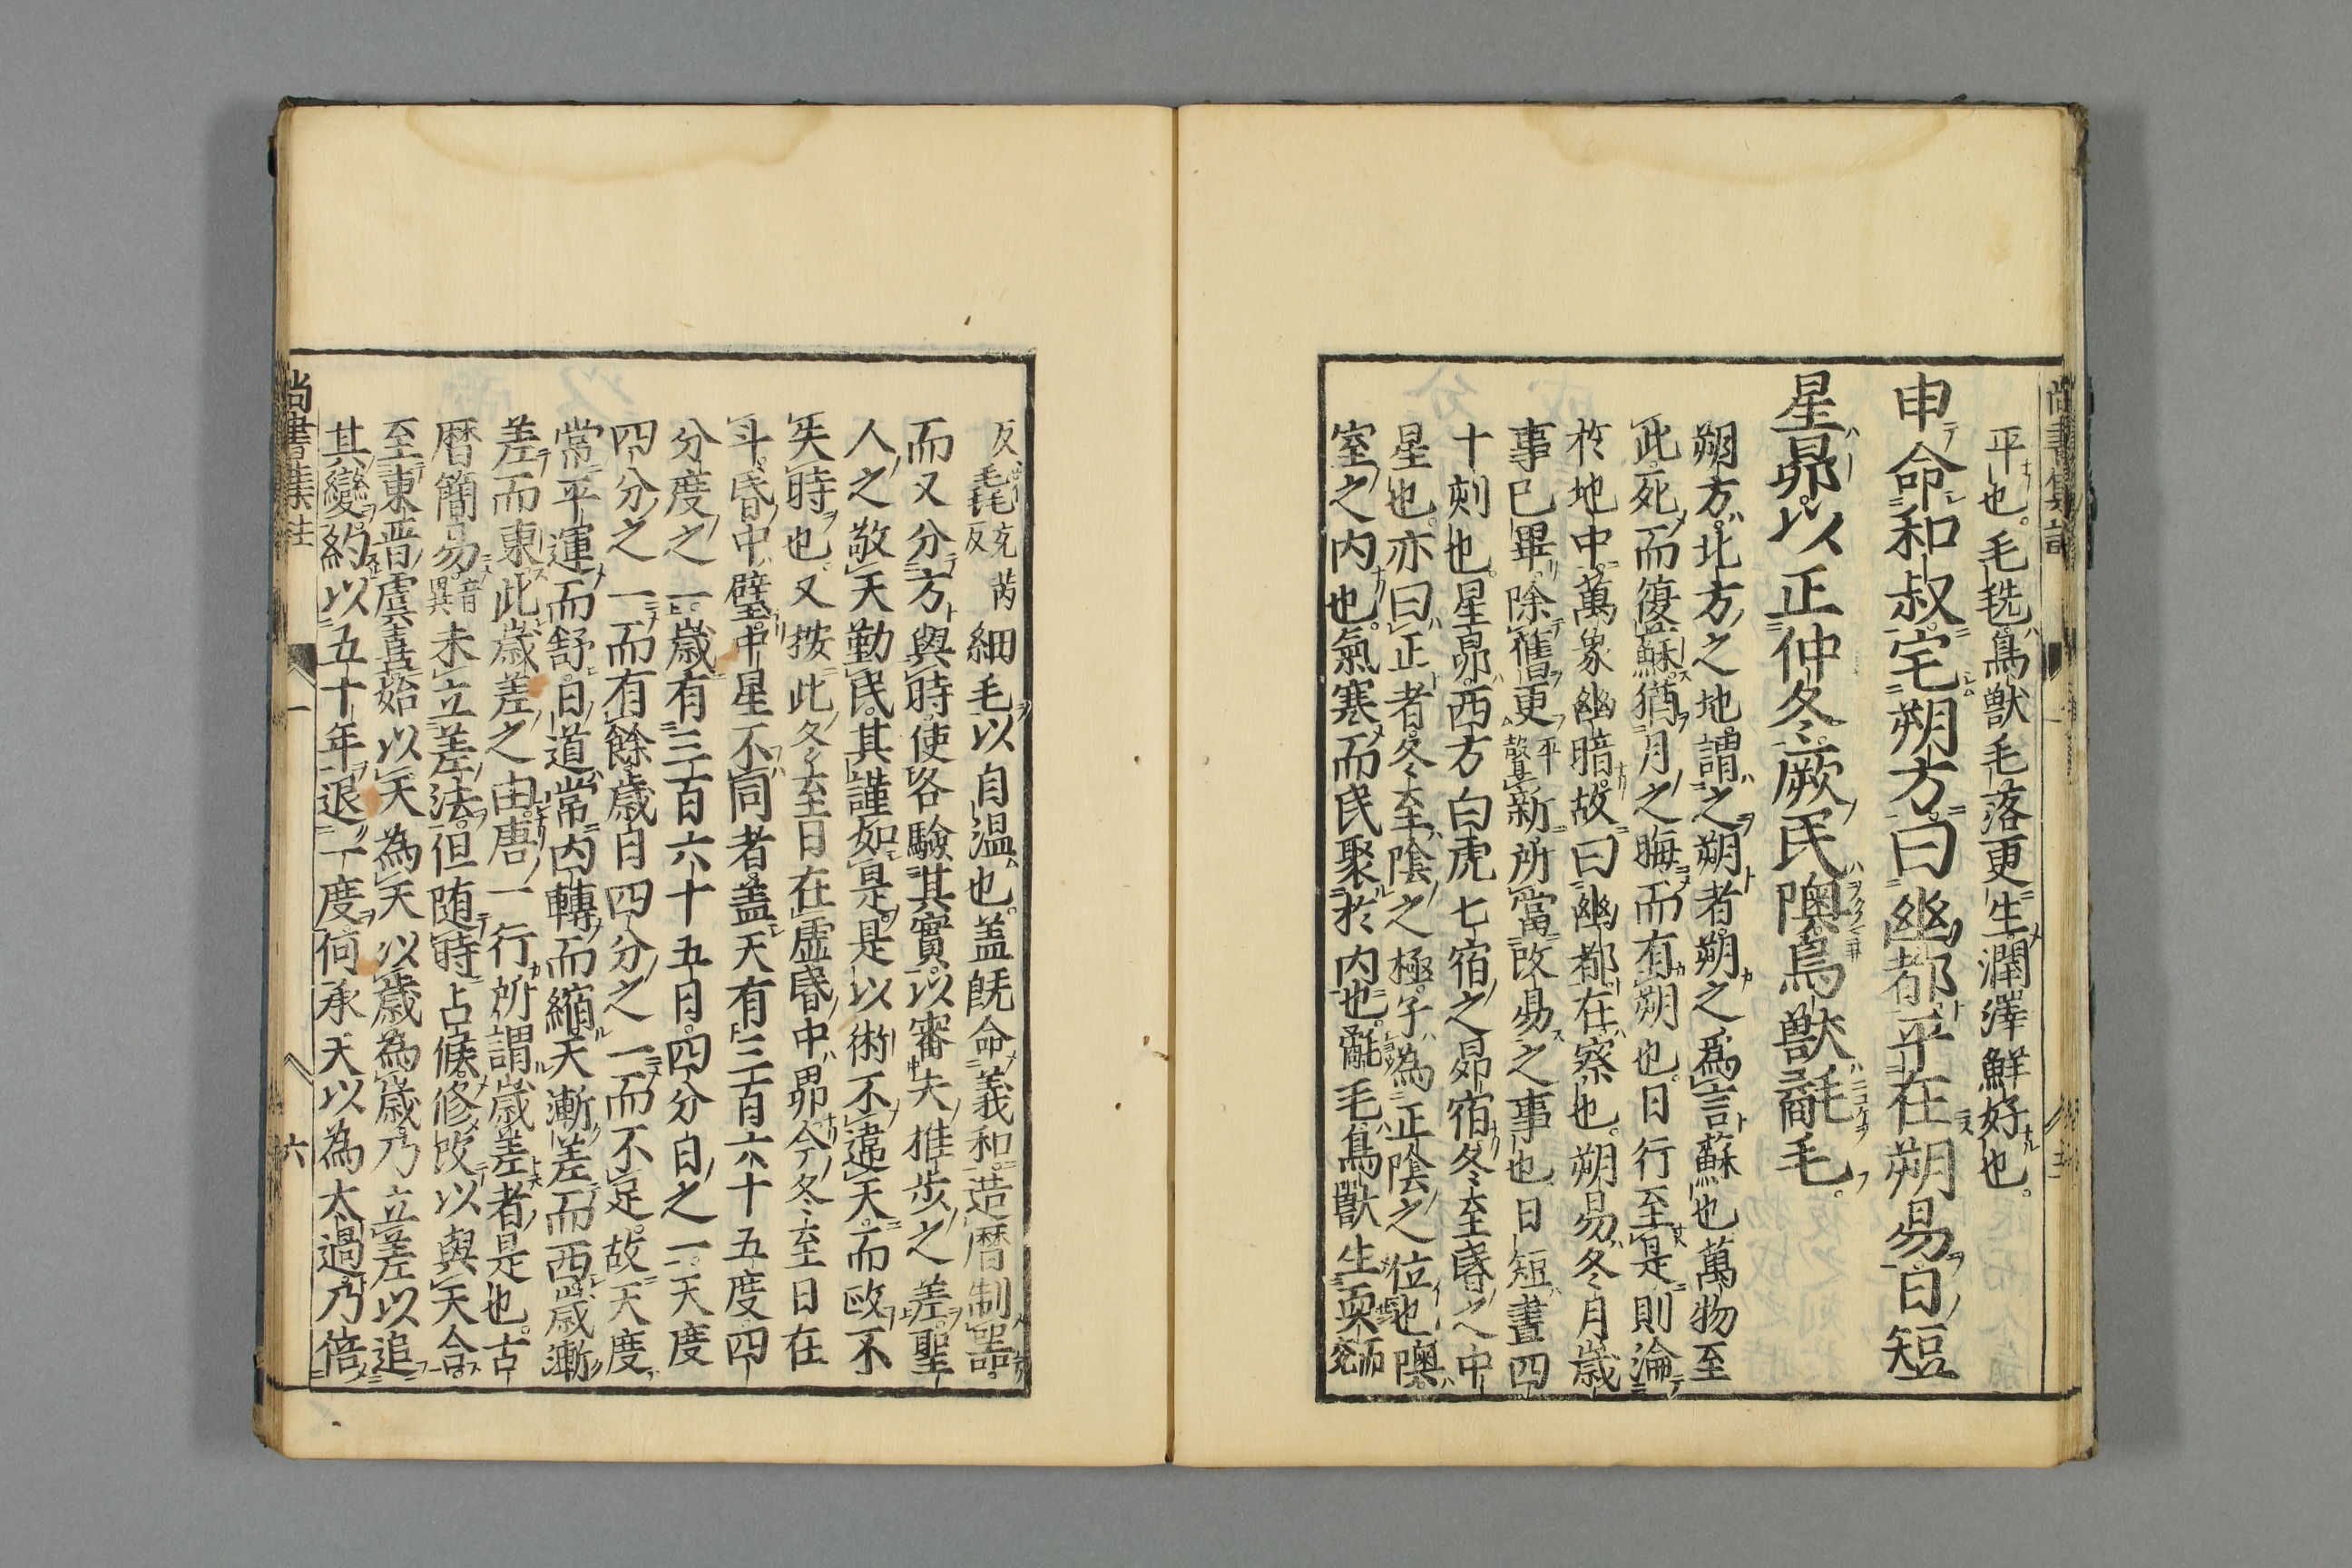 平也。毛毨。鳥獸毛落更生。潤澤鮮好也。
申命和叔。宅朔方。曰幽都。平在朔易。日短
星昴。以正仲冬。厥民隩。鳥獸氄毛。
朔方。北方之地。謂之朔者。朔之爲言蘇也。萬物至
此死而復蘇。猶月之晦而有朔也。日行至是。則淪
於地中。萬象幽暗。故曰幽都。在察也。朔易。冬月歲
事已畢。除舊更平聲新。所當改易之事也。日短。晝四
十刻也。星昴。西方白虎七宿之昴宿。冬至昏之中
星也。亦曰正者。冬至陰之極。子為正陰之位也。隩。
室之内也。氣寒而民聚於内也。氄毛。鳥獸生耎而兗
反毳充芮反細毛。以自温也。盖既命羲和。造曆制器。
而又分方與時。使各驗其實。以審夫推步之差。聖
人之敬天勤民。其謹如是。是以術不違天。而政不
失時也。又按此冬至日在虛。昏中昴。今冬至日在
斗。昏中壁。中星不同者。盖天有三百六十五度四
分度之一。歲有三百六十五日四分日之一。天度
四分之一而有餘。歲日四分之一而不足。故天度
常平運而舒。日道常内轉而縮。天漸差而西。歲漸
差而東。此歲差之由。唐一行所謂歲差者是也。古
曆簡易。音異未立差法。但随時占候。修改以與天合。
至東晋虞喜。始以天為天。以歲為歲。乃立差以追
其變。約以五十年退一度。何承天以為太過。乃倍
尚書集註 一 六